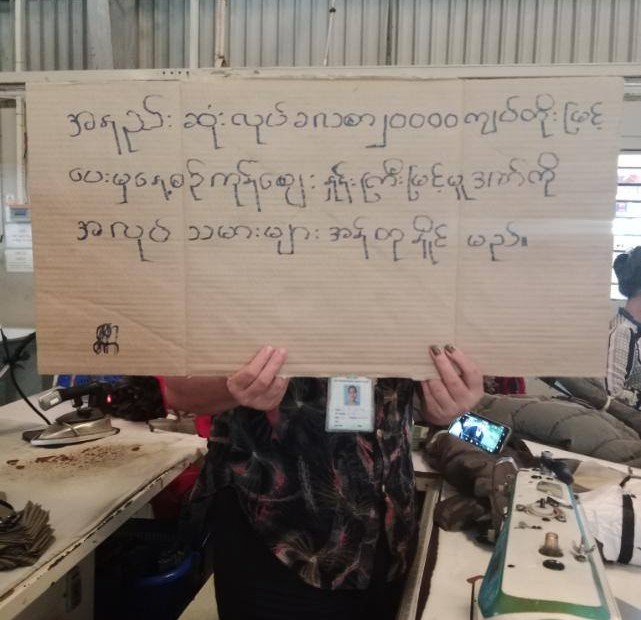 အနည်းဆုံးလုပ်ခလစာ၂၀၀၀၀ကျပ်တိုးမြှင့်
ပေးမှနေ့စဉ်ကုန်စျေးနှုန်းကြီးမြင့်မှုဒဏ်ကို
အလုပ်သမားများအန်တုနိုင်မည်။